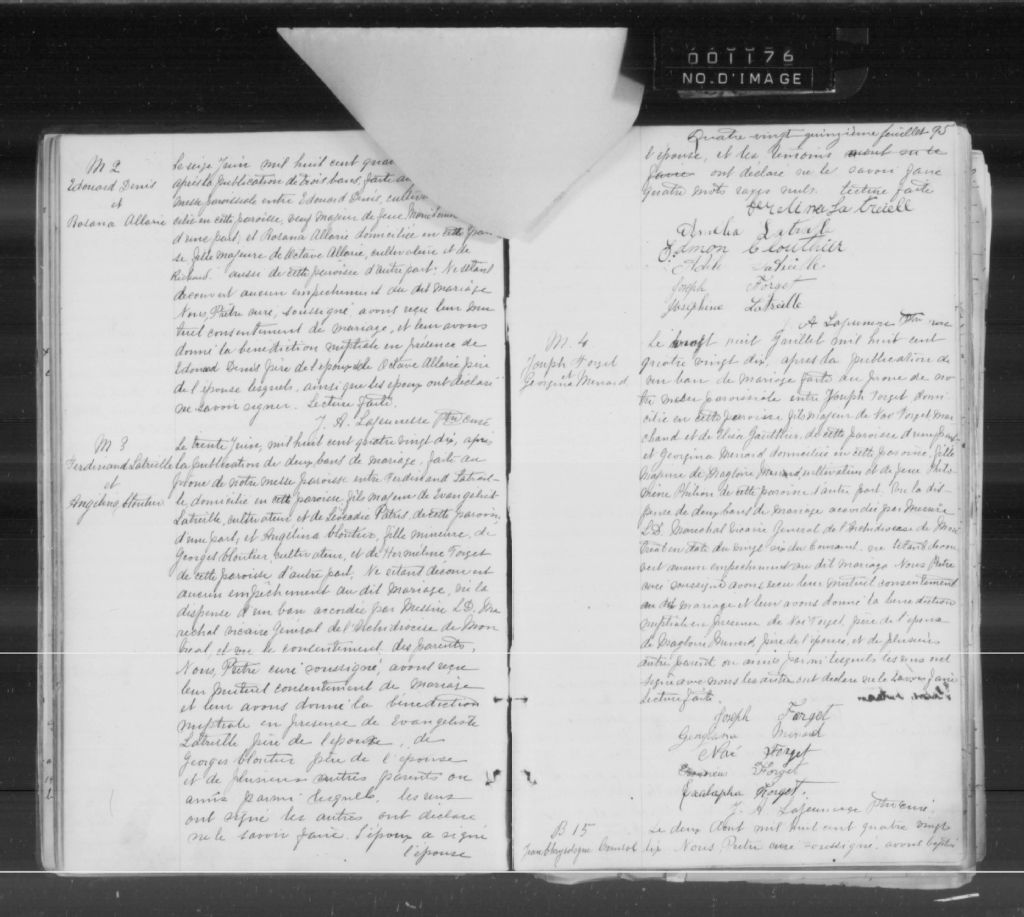 001176
NO. D'IMAGE
M 2
Edouard Denis
et
Rosana Allarie
Le seize Juin mil huit cent quat
après la publication de trois bans, faite au
messe paroissiale entre Edouard Denis, cultiv
cilié en cette paroisse, veuf majeur de
d'une part, et Rosana Allarie domiciliée en cette parois
se fille majeure de Octave Allarie, cultivateur et de
Richard aussi de cette paroisse d'autre part. Ne s'étant
decouvert aucun empechement au dit mariage
Nous, Prêtre curé, soussigné, avons reçu leur mu
tuel consentement de mariage, et leur avons
donné la bénédiction nuptiale en présence de
Edouard Denis père de l'époux de Octave Allarie père
de l'épouse lesquels, ainsi que les époux ont déclaré
ne savoir signer. Lecture faite.
J. A. Lajeunesse Ptre curé
M 3
Ferdinand Latreille
et
Angelina Cloutier
Le trente Juin, mil huit cent quatre vingt dix, après
la publication de deux bans de mariage, faite au
prône de notre messe paroissiale entre Ferdinand Latreil
le domicilié en cette paroisse, fils majeur de Evangeliste
Latreille, cultivateur et de Léocadie Patris, de cette paroisse
d'une part, et Angélina Cloutier, fille mineure, de
Georges Cloutier, cultivateur, et de Hermeline Forget
de cette paroisse d'autre part. Ne s'étant découvert
aucun empêchement au dit mariage, vu la
dispense d'un ban accordée par Messire L.D. Ma
rechal vicaire Général de l'Archidiocèse de Mon
treal, et vu le consentement des parents,
Nous, Prêtre curé soussigné, avons reçu
leur mutuel consentement de mariage
et leur avons donné la bénédiction
nuptiale en presence de Evangeliste
Latreille père de l'époux, de
Georges Cloutier père de l'épouse
et de plusieurs autres parents ou
amis parmi lesquels, les uns
ont signé les autres ont déclaré
ne le savoir faire. L'époux a signé
l'épouse
Quatre vingt quinzième feuillet 95
l'épouse, et les témoins
ont déclaré ne le savoir faire
Quatre mots rayés nuls. Lecture faite
Latreille
Amelia Latreill
Edmon Clouthier
Adele Latreille
Joseph Forget
Joséphine Latreille
J. A. Lajeunesse Ptre curé
M. 4
Joseph Forget
et
Georgina Menard
Le vingt huit Juillet mil huit cent
quatre vingt dix, après la publication de
un ban de mariage faite au prône de no
tre messe paroissiale entre Joseph Forget domi
cilié en cette paroisse fils majeur de Noé Forget mar
chand et de Elisa Gauthier, de cette paroisse d'une part
et Georgina Menard domiciliée en cette paroisse, fille
majeure de Magloire Menard, cultivateur et de Phile
mène Philion de cette paroisse d'autre part. Vu la dis
pense de deux bans de mariage accordée par Messire
L.D. Maréchal vicaire Général de l'Archidiocèse de Mon
tréal en date du vingt six du courant, ne s'étant decou
vert aucun empêchement au dit mariage Nous Prêtre
curé soussigné avons reçu leur mutuel consentement
au dit mariage et leur avons donné la bénédiction
nuptiale en présence de Noé Forget, père de l'époux
de Magloire Menard, père de l'épouse, et de plusieurs
autres parents ou amis parmi lesquels les uns ont
signé avec nous les autres ont déclaré ne le savoir faire
Lecture faite.
Joseph Forget
Georgianna Menard
Noé Forget
Forget
Forget.
J. A. Lajeunesse Ptre curé
B 15
Jean Chrysologue
Le deux Aout mil huit cent quatre vingt
dix Nous Prêtre curé soussigné, avons baptisé